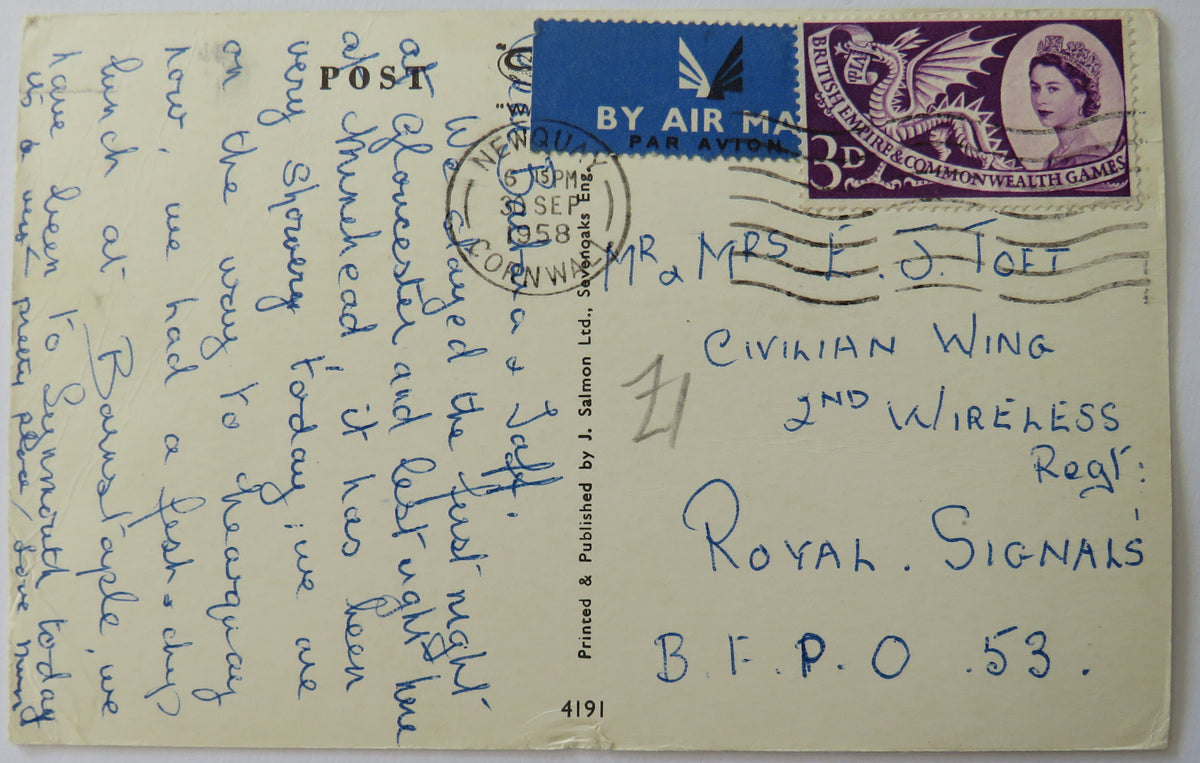 POST
BY AIR MA
PAR AVION
BRITISH EMPIRE & COMMONWEALTH GAMES
3D
NEWQUAY
CORNWALL
6 15 PM
SEP
1958
Barbara & Taff.
We stayed the first night
at Gloucester and last night here
at Minehead, it has been
very Showery today, we are
on the way to Newquay
now, we had a fish & chip
lunch at Barnstaple, we
have been to Lynmouth today
it's a very pretty place, love Mum
Printed & Published by J. Salmon Ltd., Sevenoaks Eng.
4191
MR & MRS E. J. TOFT
CIVILIAN WING
2ND WIRELESS
Regt:
ROYAL. SIGNALS
B.F.P.O. 53.
Z1